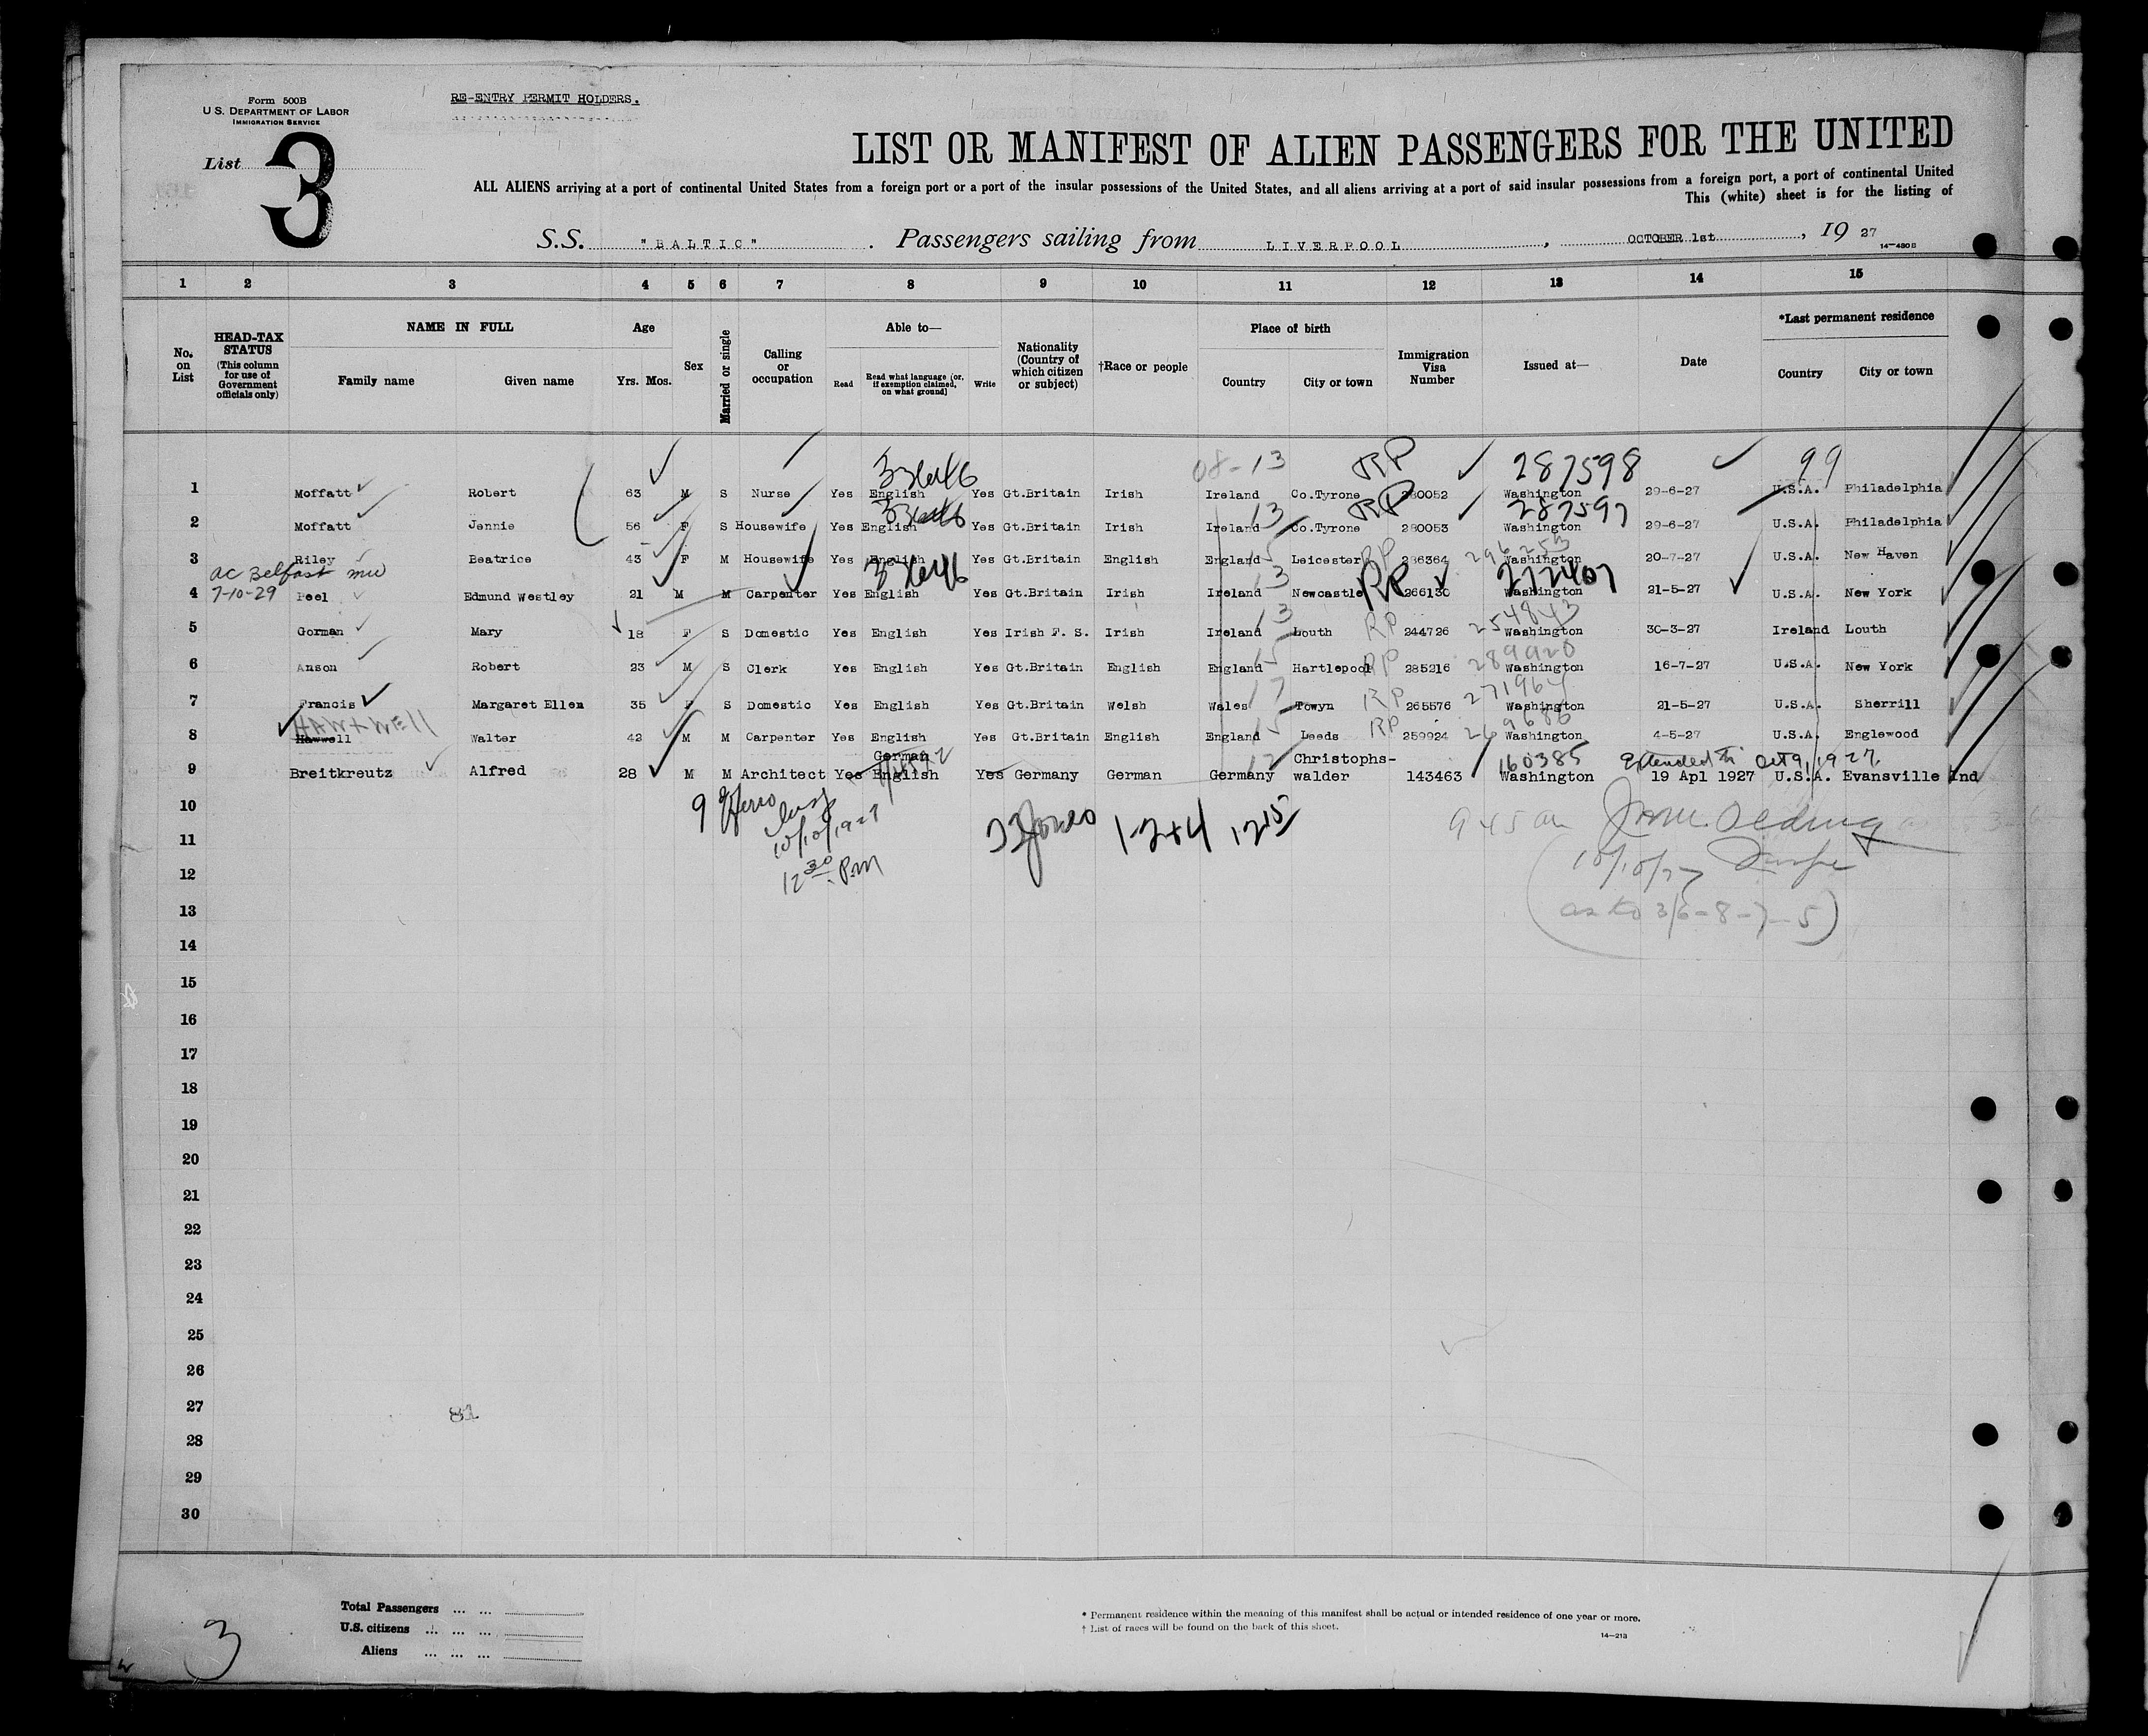 Form 500B
U.S. DEPARTMENT OF LABOR
IMMIGRATION SERVICE
RE-ENTRY PERMIT HOLDERS.
List 3
LIST OR MANIFEST OF ALIEN PASSENGERS FOR THE UNITED
ALL ALIENS arriving at a port of continental United States from a foreign port or a port of the insular possessions of the United States, and all aliens arriving at a port of said insular possessions from a foreign port, a port of continental United
This (white) sheet is for the listing of
S.S. "BALTIC" . Passengers sailing from LIVERPOOL , OCTOBER 1st , 19 27
14—430B
1 2 3 4 5 6 7 8 9 10 11 12 13 14 15
No. on List
HEAD-TAX STATUS (This column for use of Government officials only)
NAME IN FULL
Family name Given name
Age
Yrs. Mos.
Sex
Married or single
Calling or occupation
Able to—
Read Read what language (or, if exemption claimed, on what ground) Write
Nationality (Country of which citizen or subject)
†Race or people
Place of birth
Country City or town
Immigration Visa Number
Issued at—
Date
*Last permanent residence
Country City or town
08-13 RP 287598 99
1 Moffatt Robert 63 M S Nurse Yes English Yes Gt.Britain Irish Ireland Co.Tyrone 280052 Washington 29-6-27 U.S.A. Philadelphia
13 RP 287597
2 Moffatt Jennie 56 F S Housewife Yes English Yes Gt.Britain Irish Ireland Co.Tyrone 280053 Washington 29-6-27 U.S.A. Philadelphia
15 RP 296253
3 Riley Beatrice 43 F M Housewife Yes English Yes Gt.Britain English England Leicester 286364 Washington 20-7-27 U.S.A. New Haven
ac Belfast
7-10-29
13 RP 272407
4 Peel Edmund Westley 21 M M Carpenter Yes English Yes Gt.Britain Irish Ireland Newcastle 266130 Washington 21-5-27 U.S.A. New York
13 RP 254843
5 Gorman Mary 18 F S Domestic Yes English Yes Irish F. S. Irish Ireland Louth 244726 Washington 30-3-27 Ireland Louth
15 RP 289920
6 Anson Robert 23 M S Clerk Yes English Yes Gt.Britain English England Hartlepool 285216 Washington 16-7-27 U.S.A. New York
17 RP 271964
7 Francis Margaret Ellen 35 F S Domestic Yes English Yes Gt.Britain Welsh Wales Towyn 265576 Washington 21-5-27 U.S.A. Sherrill
HAWXWELL 15 RP 269686
8 Hawwell Walter 42 M M Carpenter Yes English Yes Gt.Britain English England Leeds 259924 Washington 4-5-27 U.S.A. Englewood
German Christophs- 160385 Extended to Oct 9, 1927
9 Breitkreutz Alfred 28 M M Architect Yes English Yes Germany German Germany walder 143463 Washington 19 Apl 1927 U.S.A. Evansville Ind
10
9
Insp
10/10/1927
12 30 P.M
1-2+4 12 15
9 45 am
11
10/10/27
12
(as to 3/6-8-7-5)
13
14
15
16
17
18
19
20
21
22
23
24
25
26
27
81
28
29
30
Total Passengers ... ...
U.S. citizens ... ... ...
Aliens ... ... ...
* Permanent residence within the meaning of this manifest shall be actual or intended residence of one year or more.
† List of races will be found on the back of this sheet.
14—213
3